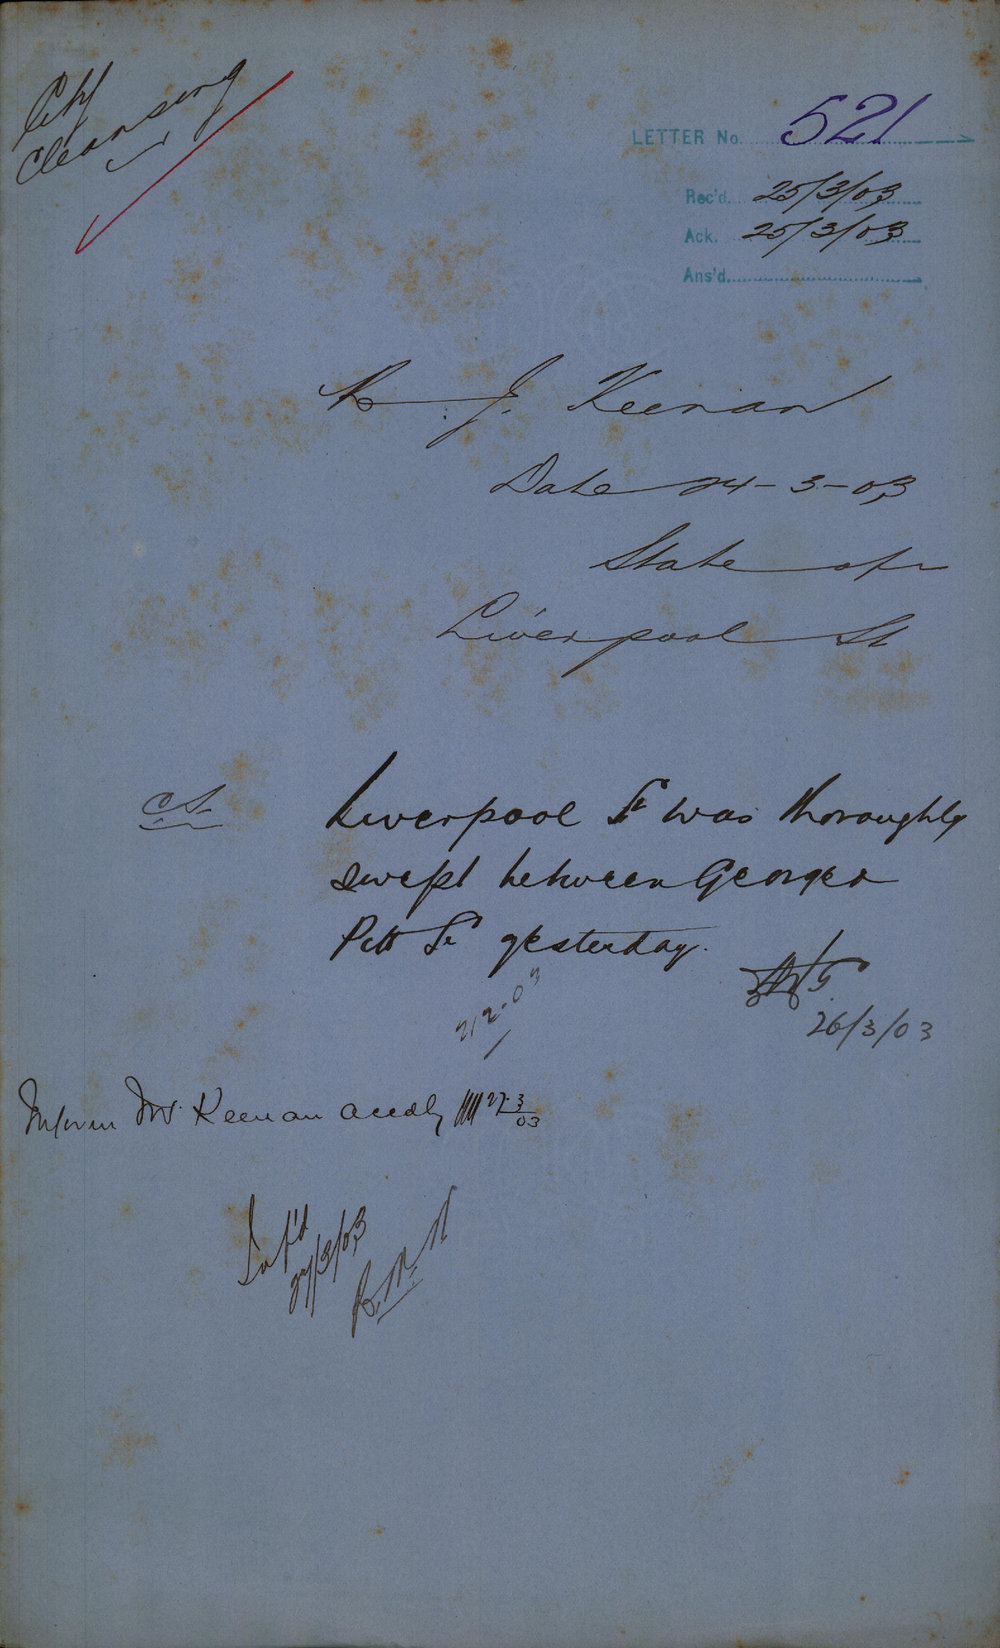 City
Cleansing
LETTER No. 521
Rec'd. 25/3/03
Ack. 25/3/03
Ans'd.
J. Keenan
Date 24-3-03
State of
Liverpool St
C.S. Liverpool St was thoroughly
swept between George &
Pitt Sts yesterday.
26/3/03
Inform Mr Keenan accdly 27-3/03
Inf'd
27/3/03